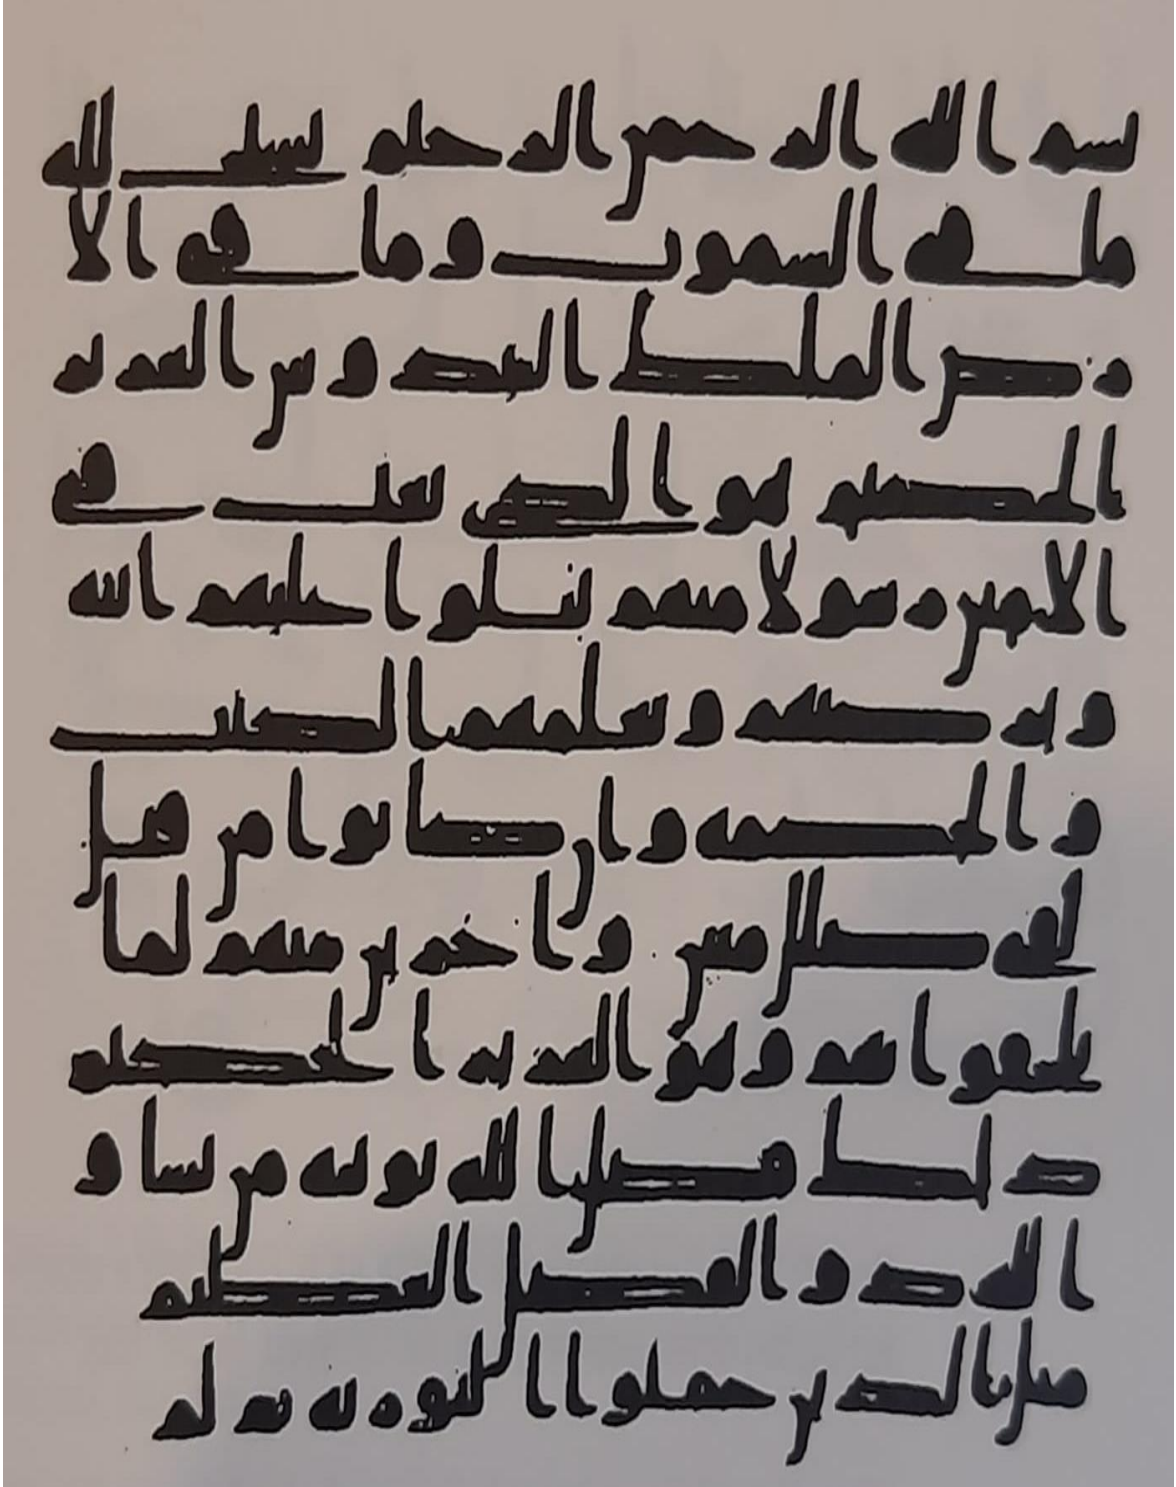 بسم الله الرحمن الرحيم يسبح لله
ما في السموت وما في الا
رض الملك القدوس العزيز
الحكيم هو الذي بعث في
الامين رسولا منهم يتلوا عليهم ايته
ويزكيهم ويعلمهم الكتب
والحكمة وان كانوا من قبل
لفي ضلل مبين واخرين منهم لما
يلحقوا بهم وهو العزيز الحكيم
ذلك فضل الله يوتيه من يشا و
الله ذو الفضل العظيم
مثل الذين حملوا التورية ثم لم